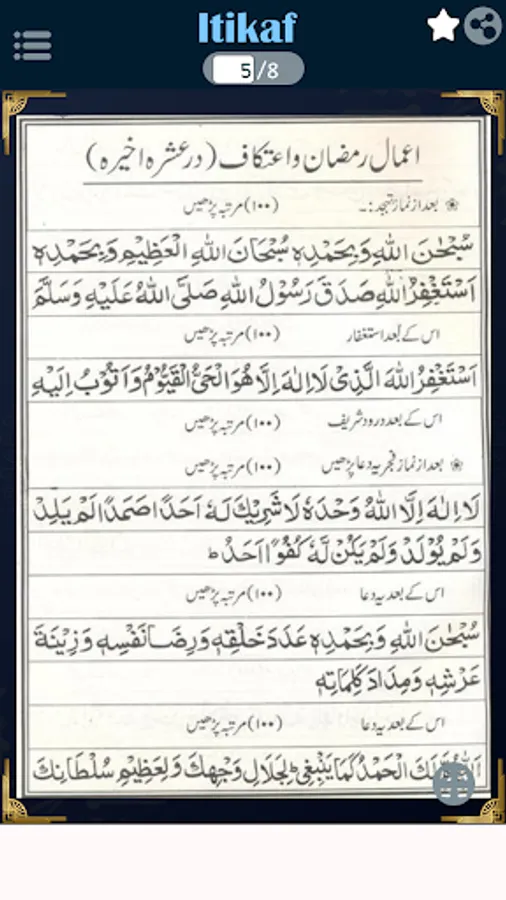 Itikaf
5/8
اعمال رمضان و اعتکاف (در عشرہ اخیرہ)
بعد از نماز تہجد:۔ (۱۰۰) مرتبہ پڑھیں
سُبْحٰنَ اللهِ وَبِحَمْدِهٖ سُبْحَانَ اللهِ الْعَظِيْمِ وَبِحَمْدِهٖ
اَسْتَغْفِرُ اللهَ صَدَقَ رَسُوْلُ اللهِ صَلَّى اللهُ عَلَيْهِ وَسَلَّمَ
اس کے بعد استغفار (۱۰۰) مرتبہ پڑھیں
اَسْتَغْفِرُ اللهَ الَّذِىْ لَا اِلٰهَ اِلَّا هُوَ الْحَىُّ الْقَيُّوْمُ وَاَتُوْبُ اِلَيْهِ
اس کے بعد درود شریف (۱۰۰) مرتبہ پڑھیں
بعد از نماز فجر یہ دعا پڑھیں (۱۰۰) مرتبہ پڑھیں
لَا اِلٰهَ اِلَّا اللهُ وَحْدَهٗ لَا شَرِيْكَ لَهٗ اَحَدًا صَمَدًا لَمْ يَلِدْ
وَلَمْ يُوْلَدْ وَلَمْ يَكُنْ لَّهٗ كُفُوًا اَحَدٌ ط
اس کے بعد یہ دعا (۱۰۰) مرتبہ پڑھیں
سُبْحٰنَ اللهِ وَبِحَمْدِهٖ عَدَدَ خَلْقِهٖ وَرِضَا نَفْسِهٖ وَزِيْنَةَ
عَرْشِهٖ وَمِدَادَ كَلِمَاتِهٖ
اس کے بعد یہ دعا (۱۰۰) مرتبہ پڑھیں
اَللّٰهُمَّ لَكَ الْحَمْدُ كَمَا يَنْبَغِىْ لِجَلَالِ وَجْهِكَ وَلِعَظِيْمِ سُلْطَانِكَ